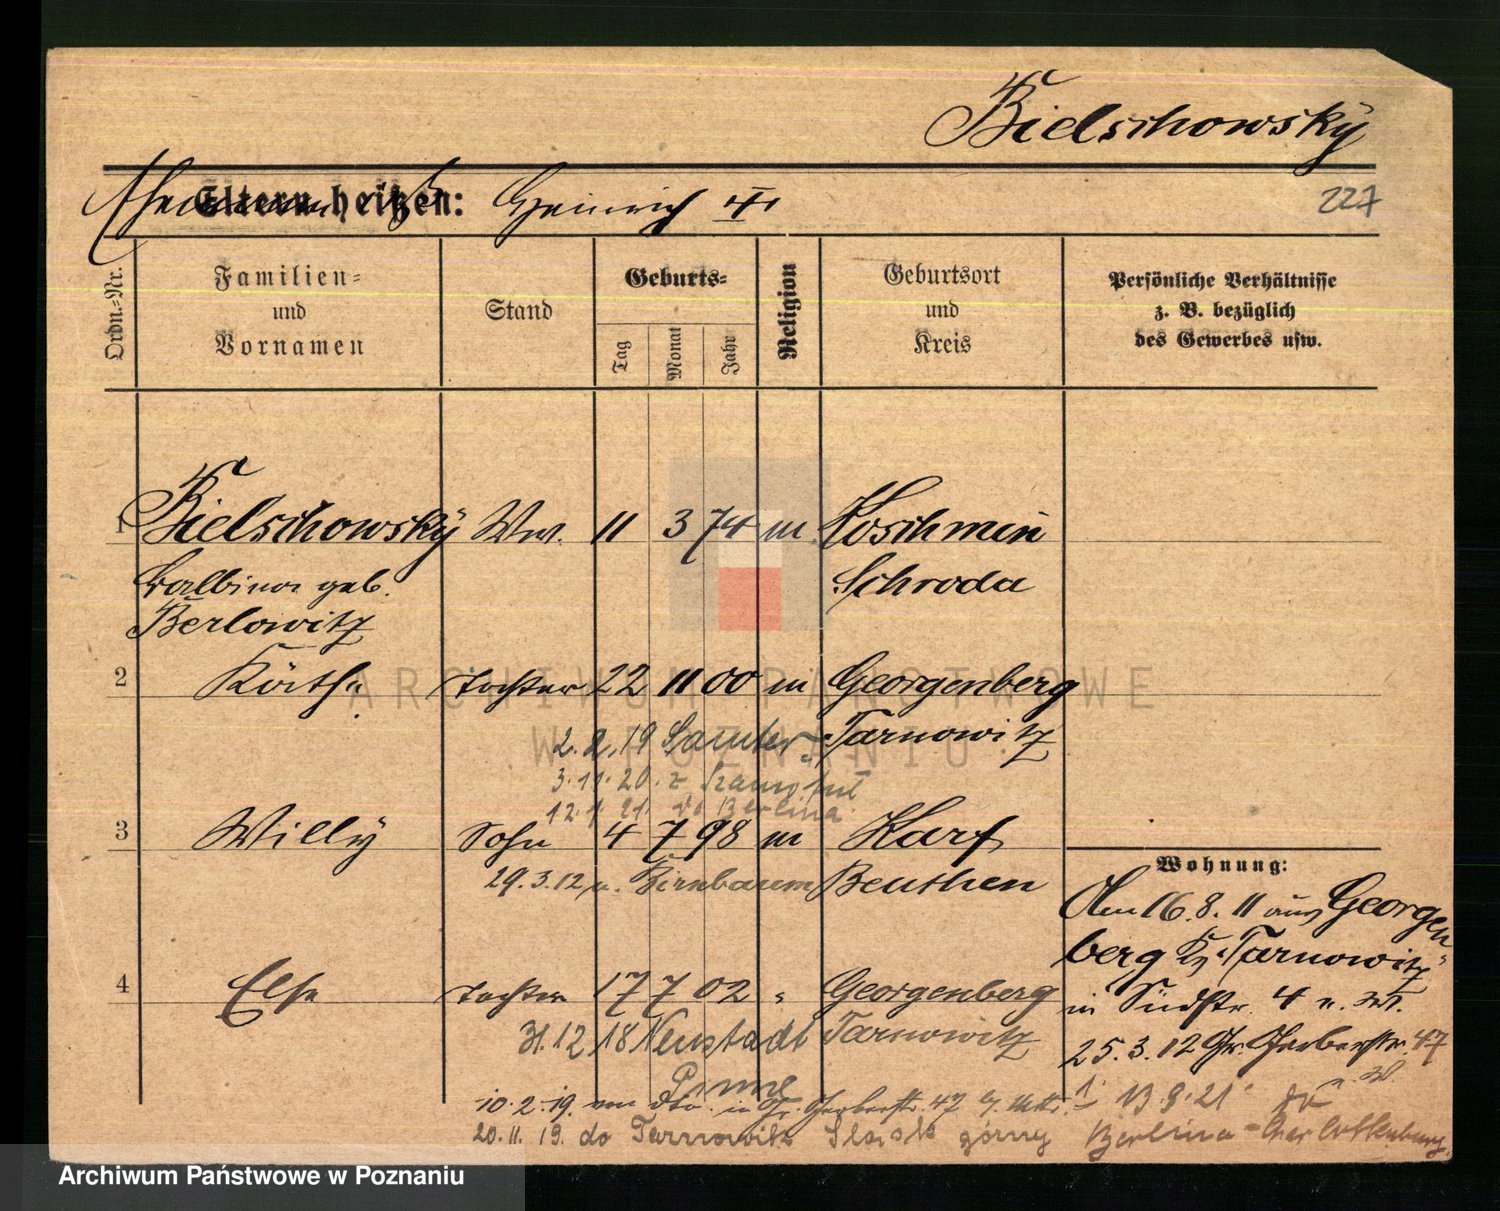 Bielschowsky
Eltern heißen: Heinrich III
227
Ordn.-Nr.
Familien-
und
Vornamen
Stand
Geburts-
Tag
Monat
Jahr
Religion
Geburtsort
und
Kreis
Persönliche Verhältnisse
z. B. bezüglich
des Gewerbes usw.
1 Bielschowsky Ww. 11 3 74 m Koschmin
Balbina geb. Schroda
Berlowitz
2 Käthe Tochter 22 11 00 m Georgenberg
2. 19 Samter Tarnowitz
3.11.20. z Szamotuł
12.1.21. do Berlina
3 Willy Sohn 4 7 98 m Karf
29.3.12 n. Birnbaum Beuthen
4 Else Tochter 17 7 02 " Georgenberg
31.12.18 Neustadt Tarnowitz
Pinne
10.2.19. von Gr. Gerberstr. 47
20.11.19. do Tarnowitz Śląsk górny
Wohnung:
Am 16.8.11 aus Georgen-
berg Kr. Tarnowitz
in Südstr. 4
25.3.12 Gr. Gerberstr. 47
13.9.21 do
Berlina-Charlottenburg
ARCHIWUM PAŃSTWOWE
W POZNANIU
Archiwum Państwowe w Poznaniu